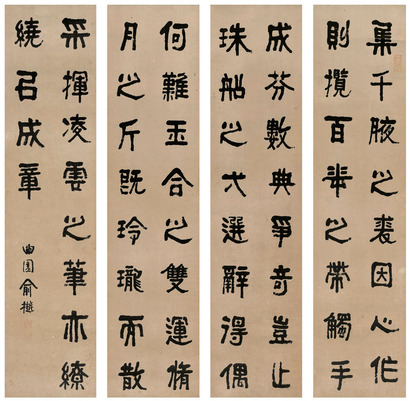 集千腋之裘因心作
則攬百華之帶觸手
成芬數典爭奇豈止
珠船之弋選辭得偶
何難玉合之雙運脩
月之斤既玲瓏而散
采揮凌雲之筆亦繚
繞㠯成章
曲園俞樾